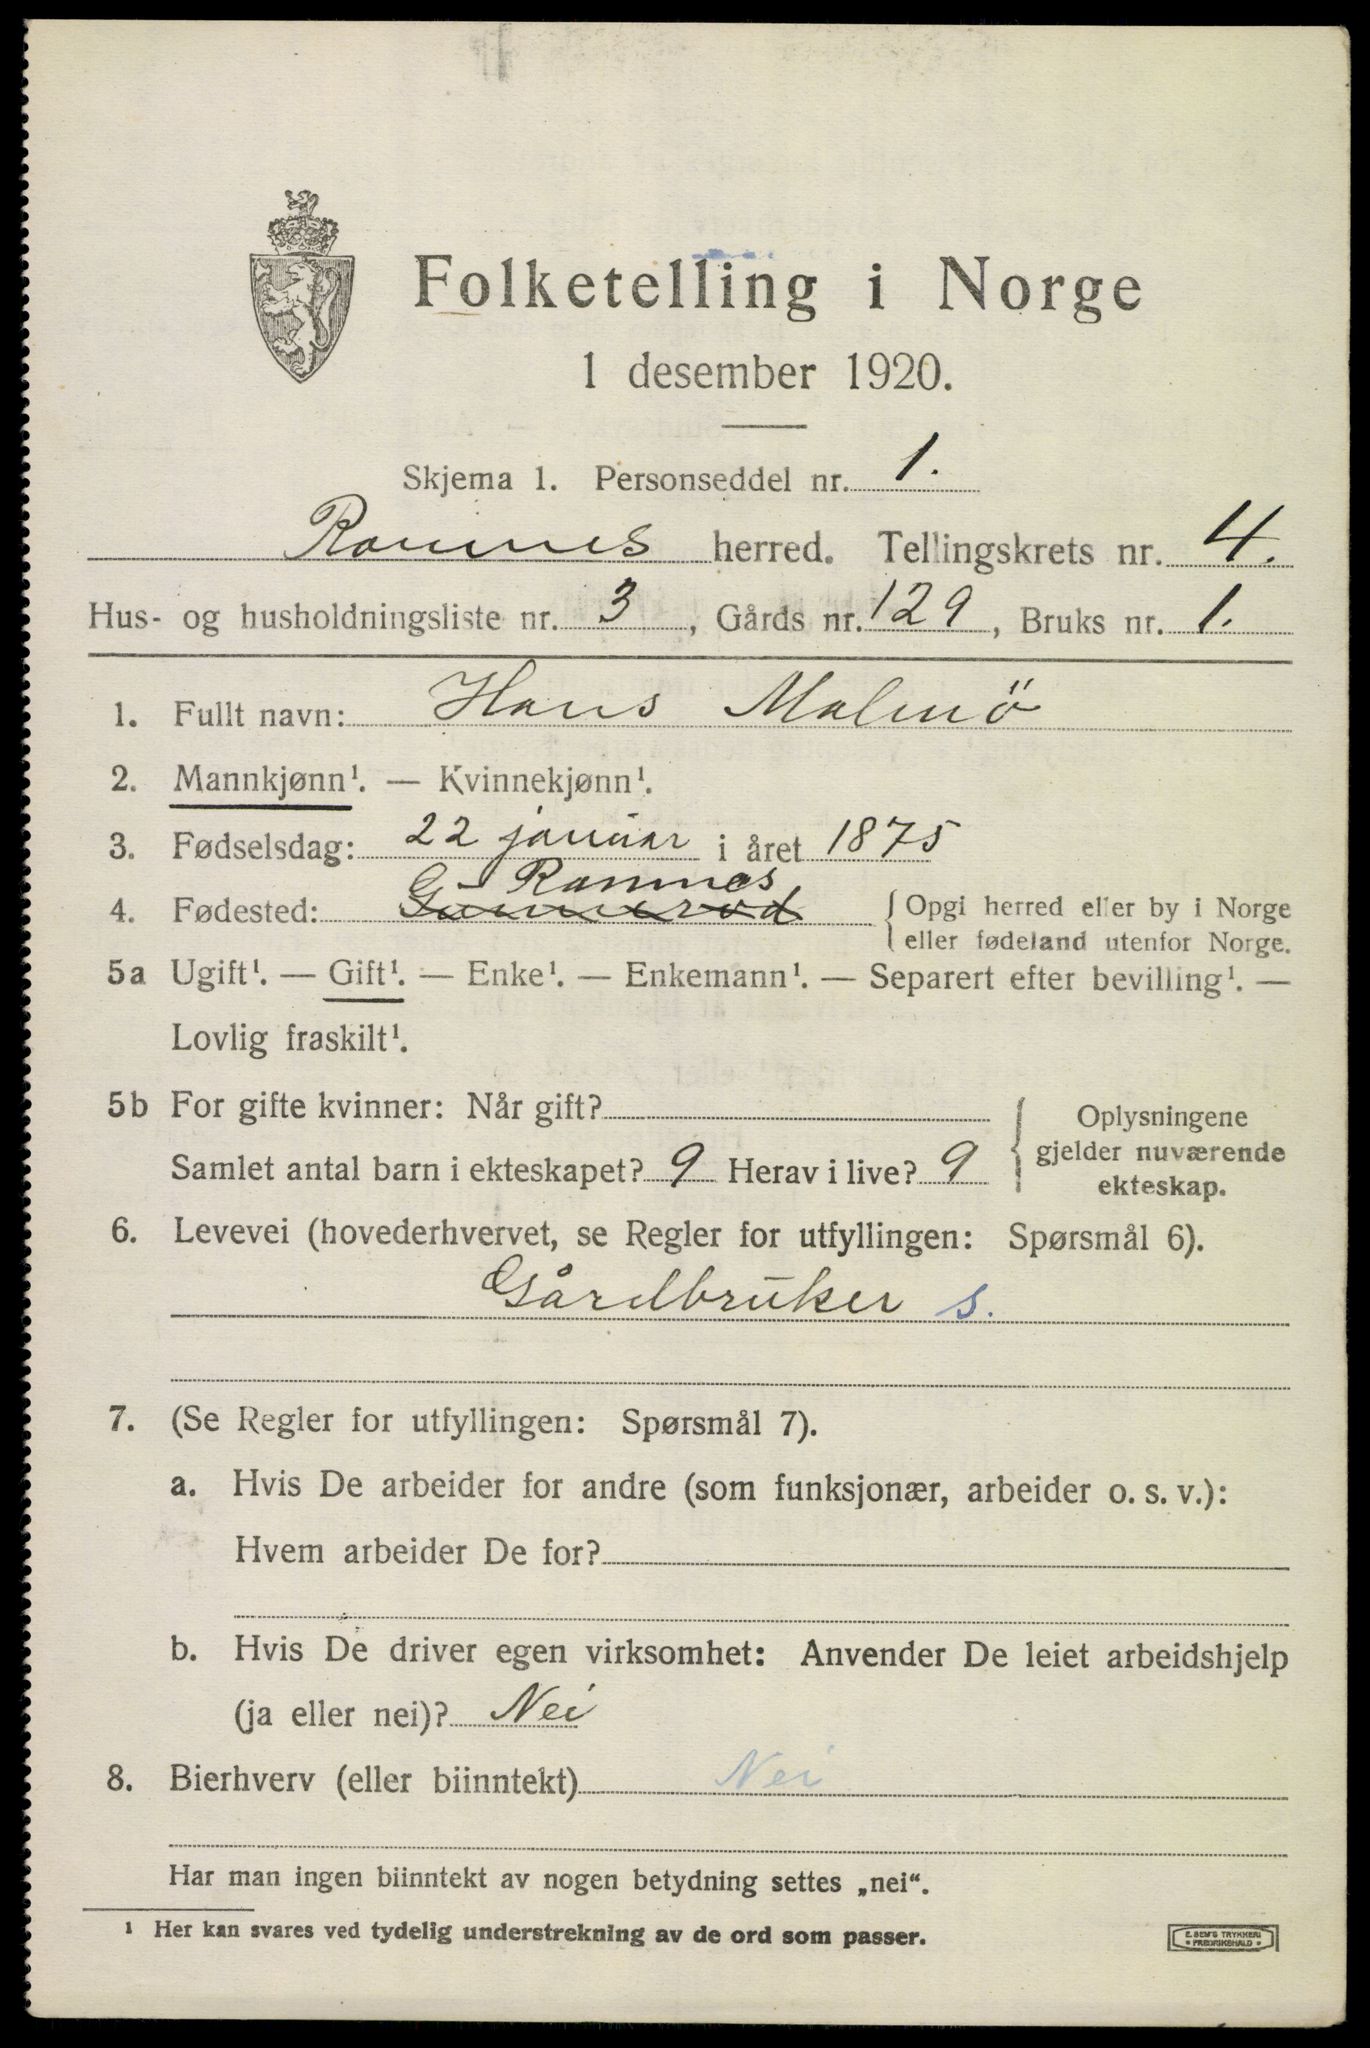 Folketelling i Norge
1 desember 1920.
Skjema 1. Personseddel nr. 1.
Ramnes herred. Tellingskrets nr. 4.
Hus- og husholdningsliste nr. 3, Gårds nr. 129, Bruks nr. 1.
1. Fullt navn: Hans Malmö
2. Mannkjønn¹. — Kvinnekjønn¹.
3. Fødselsdag: 22 januar i året 1875
Ramnes
4. Fødested: { Opgi herred eller by i Norge
eller fødeland utenfor Norge.
5a Ugift¹. — Gift¹. — Enke¹. — Enkemann¹. — Separert efter bevilling¹. —
Lovlig fraskilt¹.
5b For gifte kvinner: Når gift?
Samlet antal barn i ekteskapet? 9 Herav i live? 9
{ Oplysningene
gjelder nuværende
ekteskap.
6. Levevei (hovederhvervet, se Regler for utfyllingen: Spørsmål 6).
Gårdbruker s.
7. (Se Regler for utfyllingen: Spørsmål 7).
a. Hvis De arbeider for andre (som funksjonær, arbeider o. s. v.):
Hvem arbeider De for?
b. Hvis De driver egen virksomhet: Anvender De leiet arbeidshjelp
(ja eller nei)? Nei
8. Bierhverv (eller biinntekt) Nei
Har man ingen biinntekt av nogen betydning settes „nei“.
¹ Her kan svares ved tydelig understrekning av de ord som passer.
E. SEM'S TRYKKERI
• FREDRIKSHALD •